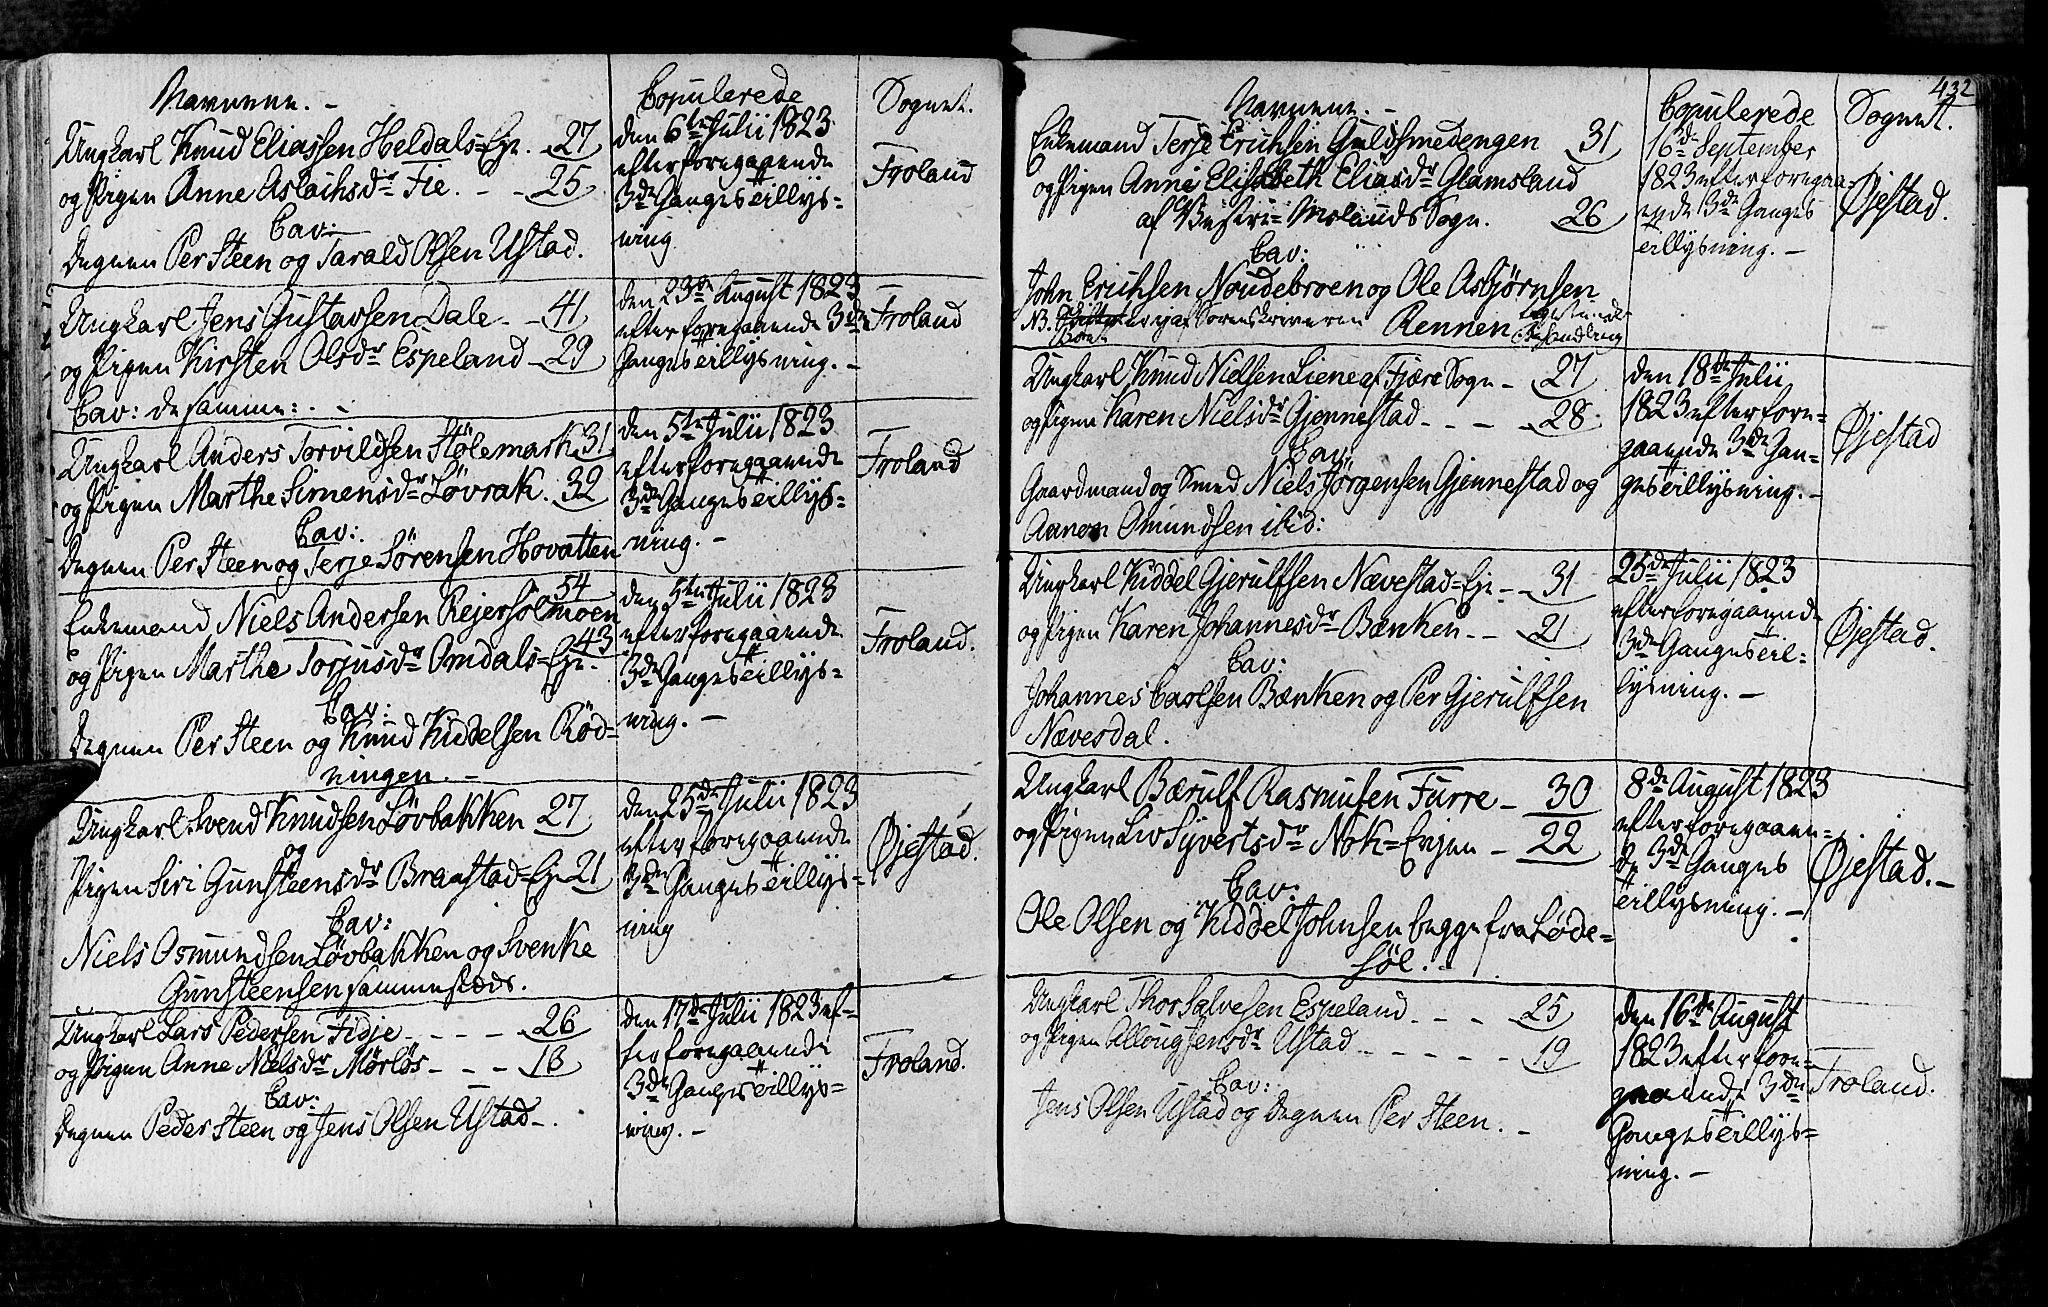 Navnene. - Copulerede Sognet.
Ungkarl Knud Eliassen Heldals=Eje. 27
og Pigen Anne Aslachsdr Fie. - - 25
Cav:
Degnen Per Steen og Tarald Olsen Ustad.
den 6te Julii 1823
efterforegaaende
3de Ganges Tillys=
ning
Froland
Ungkarl Jens Gustavsen Dale - - 41
og Pigen Kirsten Olsdr Espeland - 29
Cav: de samme: . -
den 23de August 1823
efterforegaaende 3de
Ganges Tillysning. -
Froland
Ungkarl Anders Torvildsen Stølemark 31
og Pigen Marthe Simensdr Løvrak. 32
Cav:
Degnen Per Steen og Terje Sørensen Hovatten
den 5te Julii 1823
efterforegaaende
3de Ganges Tillys=
ning. -
Froland
54
Enkemand Niels Andersen Rejersølmoen
43
og Pigen Marthe Torjusdr Omdals=Eje.
Cav:
Degnen Per Steen og Knud Kiddelsen Rød=
ningen. -
den 5te Julii 1823
efterforegaaende
3de Ganges Tillys=
ning. -
Froland.
Ungkarl Svend Knudsen Løvbakken 27
og
Pigen Siri Gunsteensdr Braastad=Eje 21
Cav:
Niels Osmundsen Løvbakken og Svenke
Gunsteensen sammesteds.
den 25de Julii 1823
efterforegaaende
3de Ganges Tillys=
ning
Øjestad.
Ungkarl Lars Pedersen Fidje - - - - 26
og Pigen Anne Nielsdr Mørløs - - - 18
Cav:
Degnen Peder Steen og Jens Olsen Ustad -.
den 17de Julii 1823 ef=
terforegaaende
3de Ganges Tillys=
ning. -
Froland.
432
Navnene. - Copulerede Sognet.
Enkemand Terje Erichsen Guldsmedengen 31
og Pigen Anne Elisabeth Eliasdr Glamsland
af Vestre=Molands Sogn. 26
Cav:
John Erichsen Noudebroen og Ole Asbjørnsen
NB. af Sorenskriveren Rennen
Behandling
16de September
1823 efterforegaa=
ende 3de Ganges
Tillysning. -
Øjestad.
Ungkarl Knud Nielsen Liene af Fjære Sogn - 27
og Pigen Karen Nielsdr Gjennestad - - - 28.
Cav:
Gaardmand og Smed Niels Jørgensen Gjennestad og
Aanon Omundsen ibid:
den 18de Julii
1823 efterfore=
gaaende 3de Gan=
ges Tillysning. -
Øjestad
Ungkarl Kiddel Gjerulfsen Nævestad=Eje - - 31
og Pigen Karen Johannesdr Bænken - - 21
Cav:
Johannes Carlsen Bænken og Per Gjerulfsen
Nævesdal.
25de Julii 1823
efterforegaaende
3de Ganges Til=
lysning. -
Øjestad.
Ungkarl Bærulf Rasmusen Furre - 30
og Pigen Liv Syvertsdr Nok=Enjen - 22
Cav:
Ole Olsen og Kiddel Johnsen begge fra Løde=
søl. -
8de August 1823
efterforegaaen=
de 3de Ganges
Tillysning. -
Øjestad. -
Ungkarl Thor Salvesen Espeland - - - 25
og Pigen Alloug Jensdr Ustad - - - - - - 19
Cav:
Jens Olsen Ustad og Degnen Per Steen. -
den 16de August
1823 efterfore=
gaaende 3de
Ganges Tillys=
ning. -
Froland.